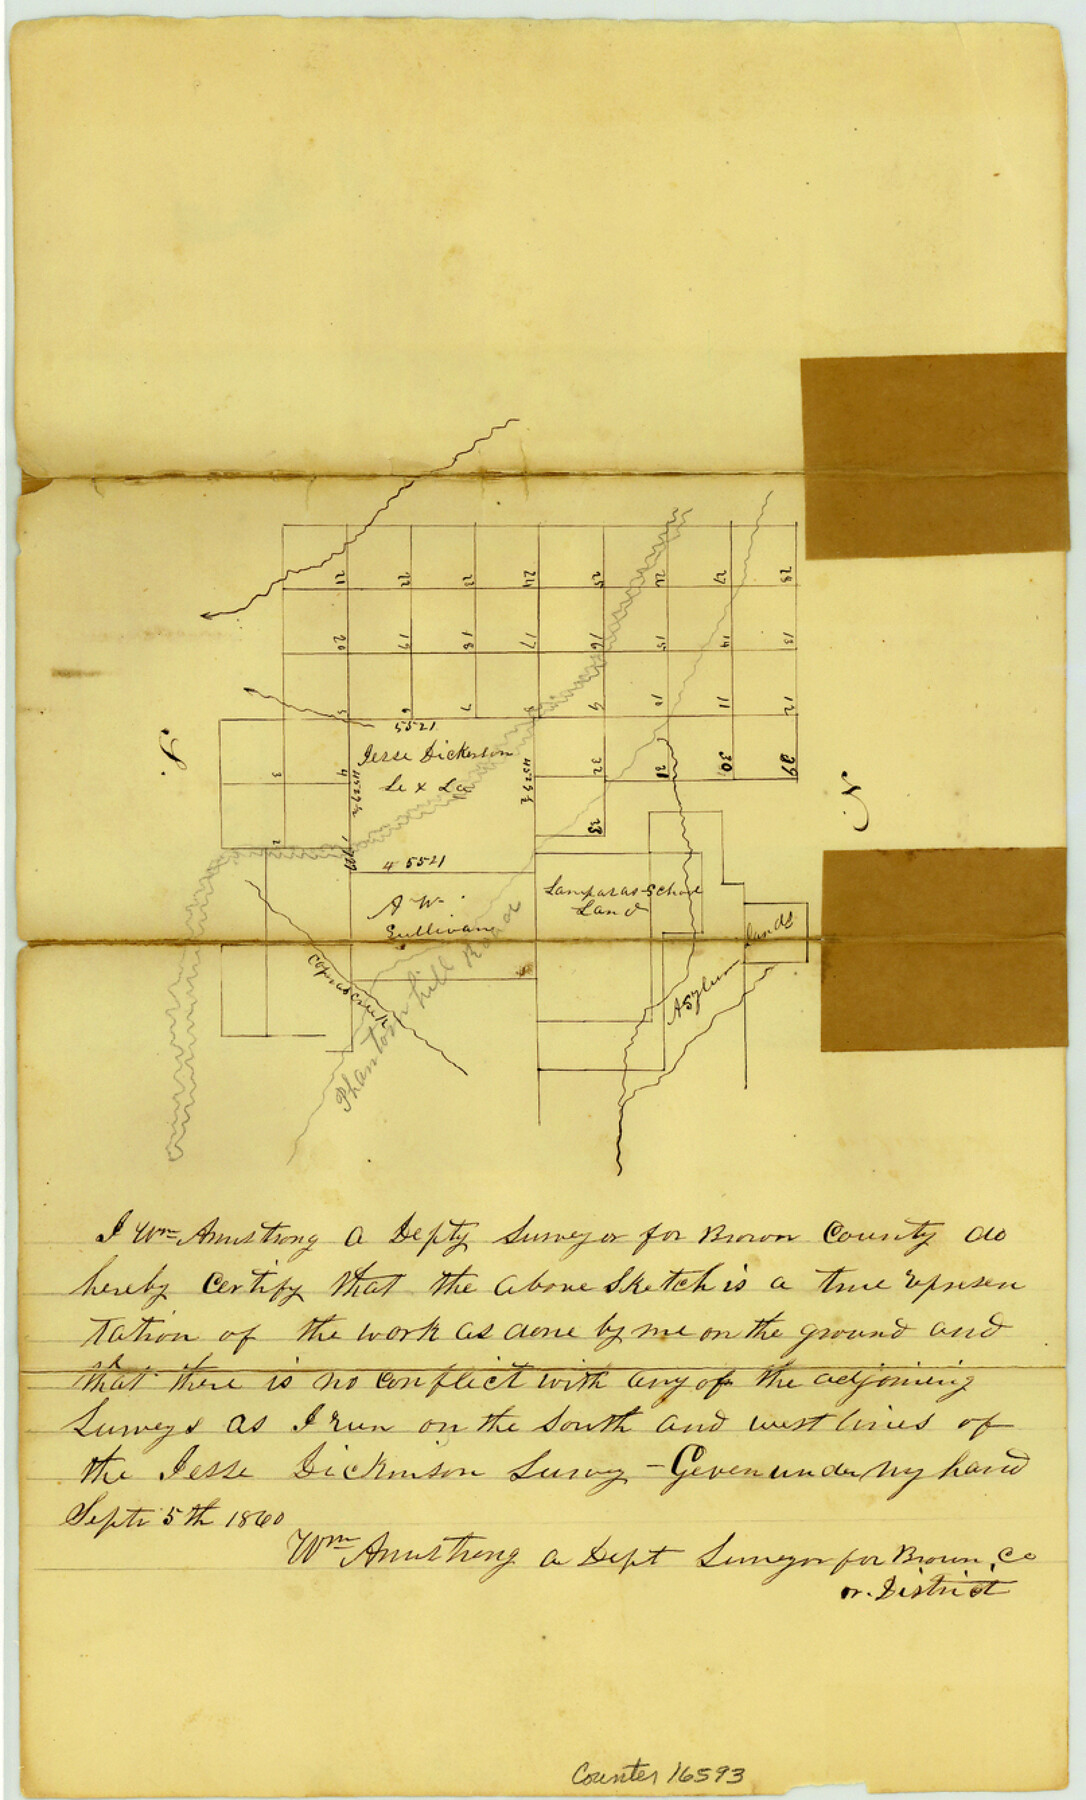 21 22 23 24 25 26 27 28
20 19 18 17 16 15 14 13
5 6 7 8 9 10 11 12
5521
Jesse Dickerson
Le & La
3 4 4529½ 4529½ 32 31 30 29
2 1 33
5521
A W
Sullivan
Lampasas School
Land
Asylum lands
Phantom hill Road
S
N
I Wm Armstrong a Depty Surveyor for Brown County do
hereby certify that the above Sketch is a true represen
tation of the work as done by me on the ground and
that there is no conflict with any of the adjoining
Surveys as I run on the South and west lines of
the Jesse Dickinson Survey - Geven under my hand
Sept 5th 1860
Wm Armstrong a Dept Surveyor for Brown, Co
or District
Counter 16593